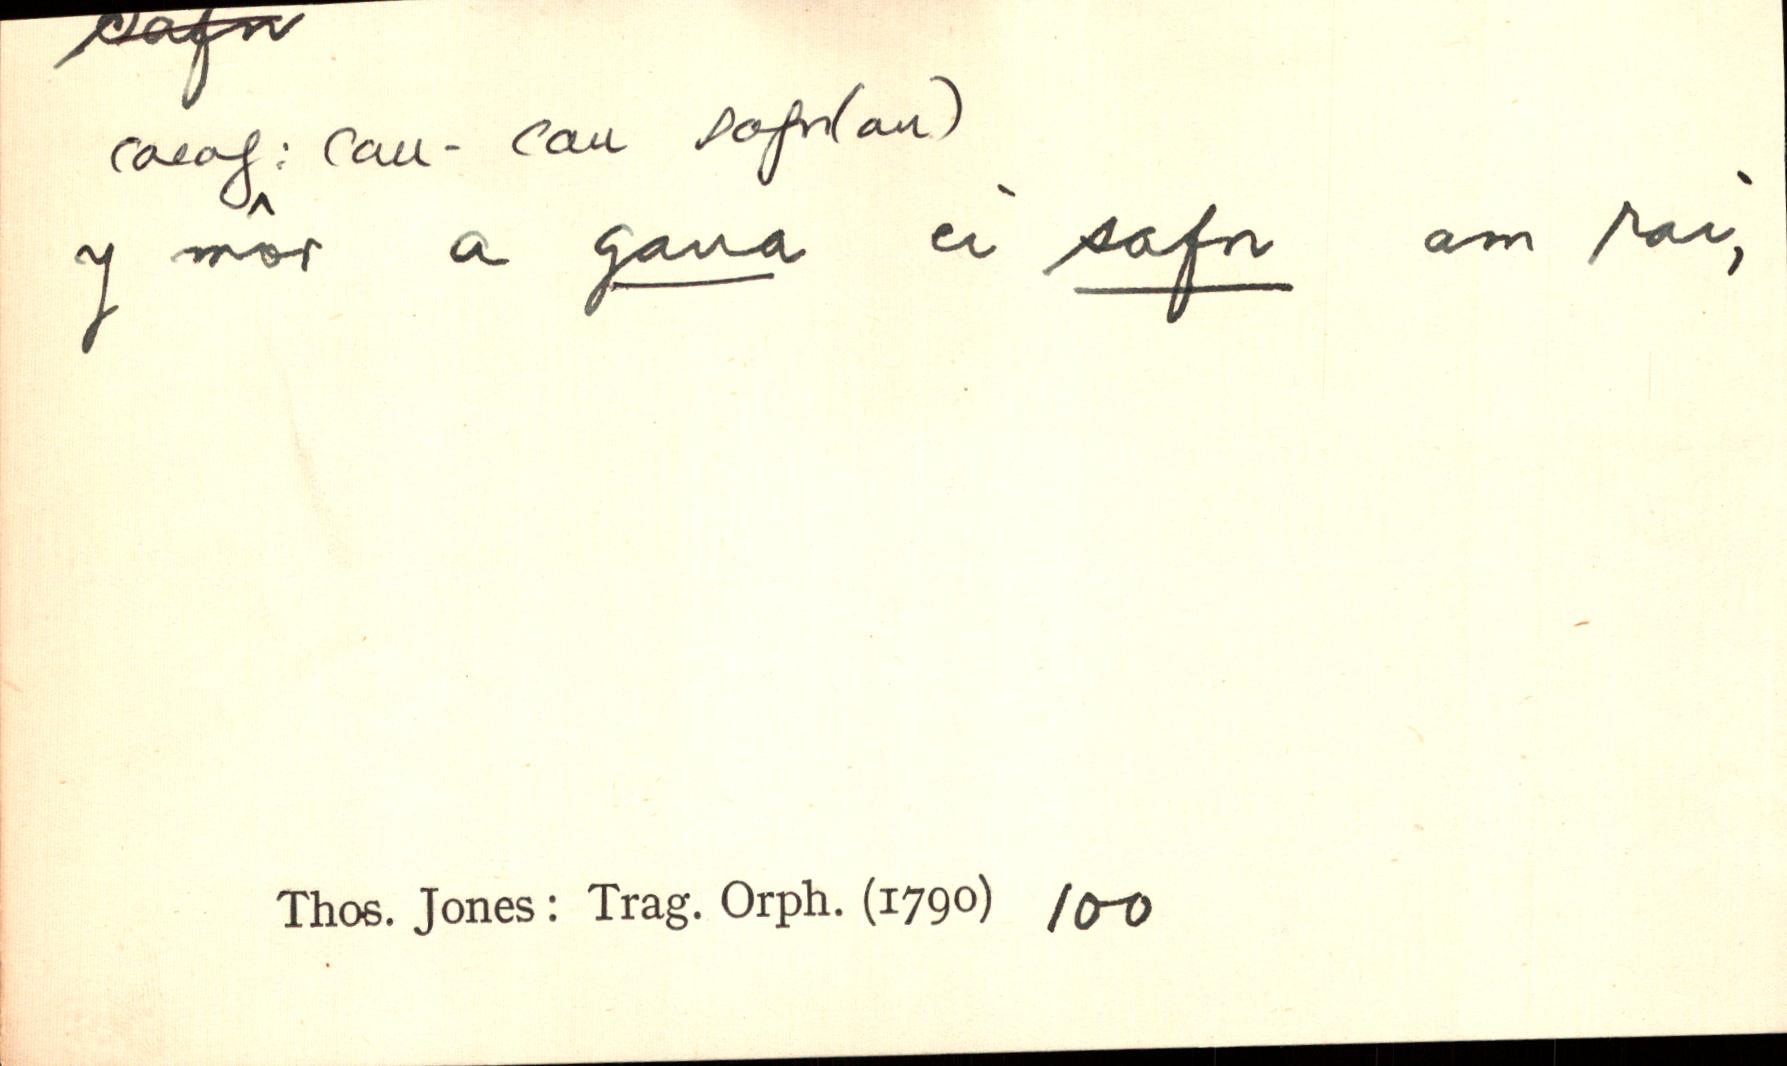 safn
caeaf: cau- cau safn(au)
y môr a gaua ei safn am rai,
Thos. Jones: Trag. Orph. (1790) 100